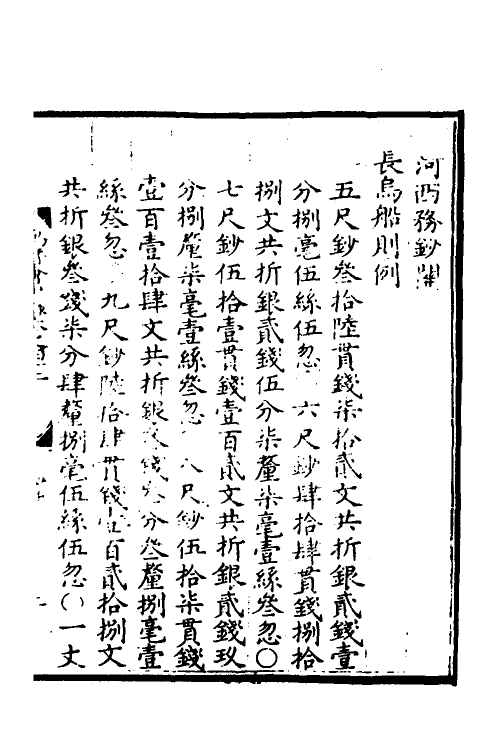 河西務鈔關
長鳥船則例
五尺鈔叄拾陸貫錢柒拾貳文共折銀貳錢壹
分捌毫伍絲伍忽 六尺鈔肆拾肆貫錢捌拾
捌文共折銀貳錢伍分柒釐柒毫壹絲叄忽〇
七尺鈔伍拾壹貫錢壹百貳文共折銀貳錢玖
分捌釐柒毫壹絲叄忽 八尺鈔伍拾柒貫錢
壹百壹拾肆文共折銀 錢 分叄釐捌毫壹
絲叄忽 九尺鈔陸拾肆貫錢壹百貳拾捌文
共折銀叄錢柒分肆釐捌毫伍絲伍忽〇一丈